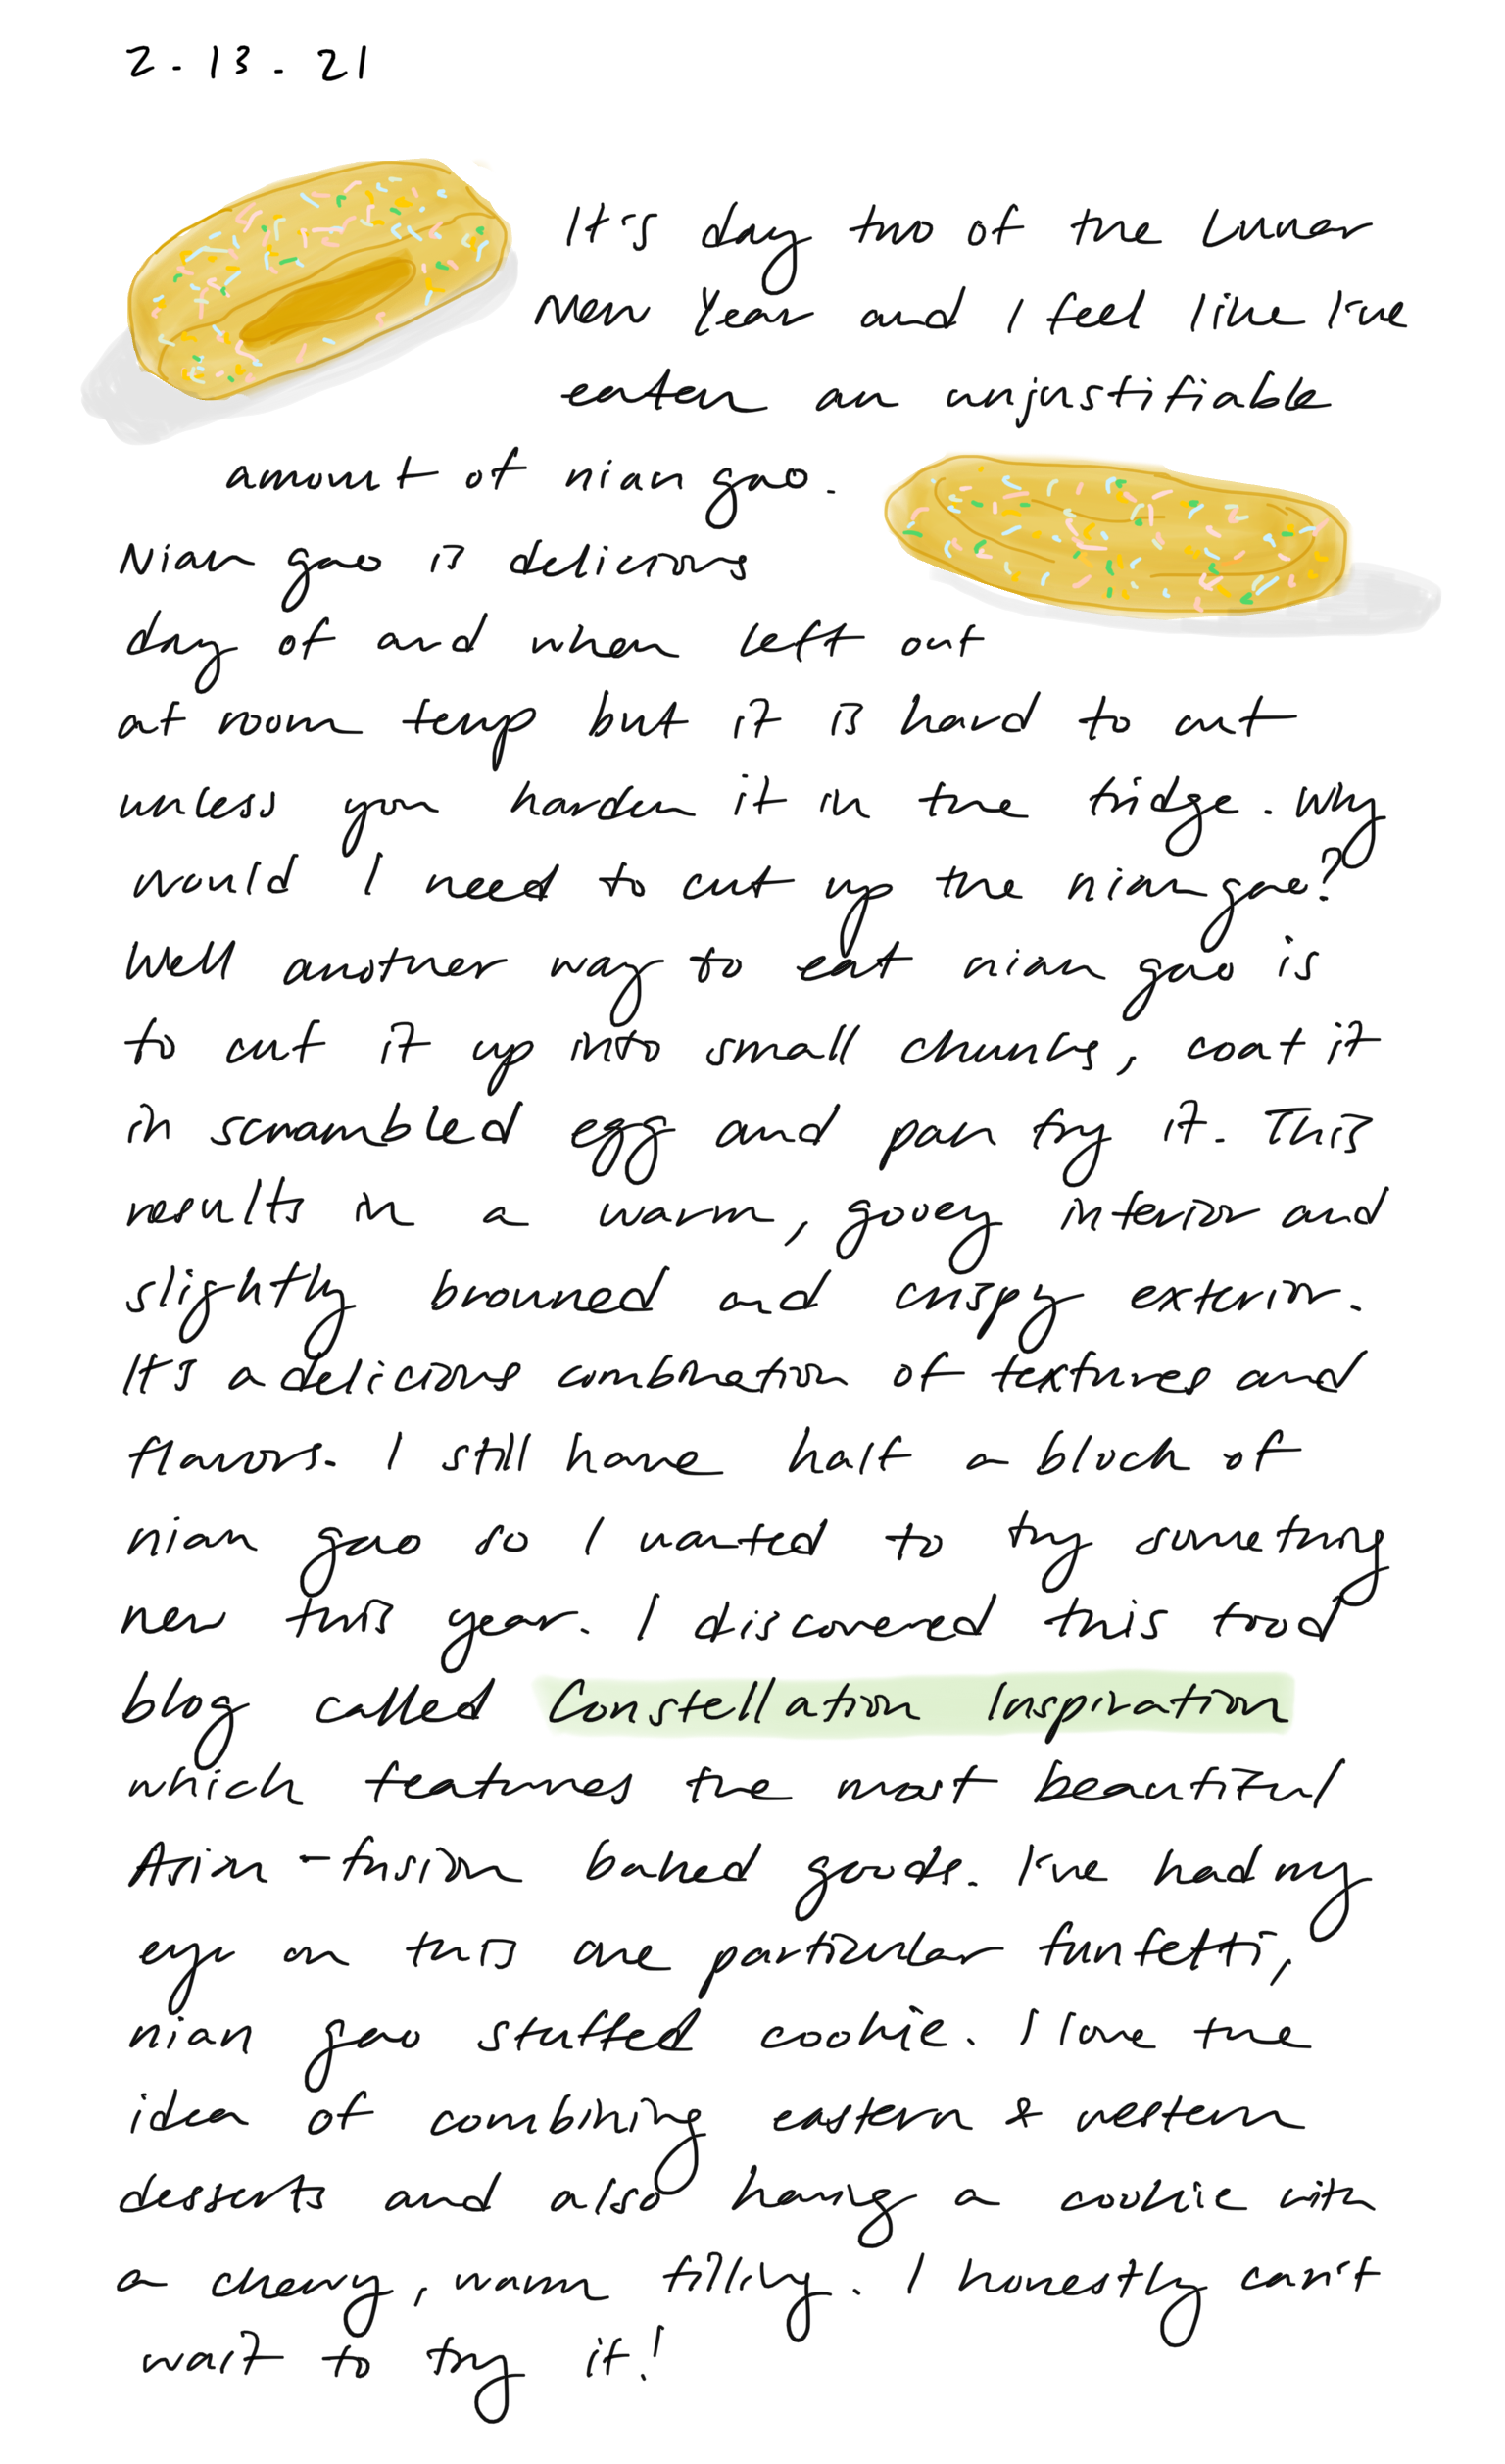 2-13-21
It's day two of the Lunar
New Year and I feel like I've
eaten an unjustifiable
amount of nian gao.
Nian gao is delicious
day of and when left out
at room temp but it is hard to cut
unless you harden it in the fridge. Why
would I need to cut up the nian gao?
Well another way to eat nian gao is
to cut it up into small chunks, coat it
in scrambled egg and pan fry it. This
results in a warm, gooey interior and
slightly browned and crispy exterior.
It's a delicious combination of textures and
flavors. I still have half a block of
nian gao so I wanted to try something
new this year. I discovered this food
blog called Constellation Inspiration
which features the most beautiful
Asian-fusion baked goods. I've had my
eye on this one particular funfetti,
nian gao stuffed cookie. I love the
idea of combining eastern & western
desserts and also having a cookie with
a chewy, warm filling. I honestly can't
wait to try it!